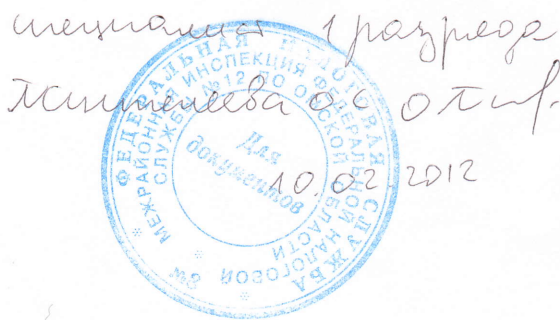 специалист 1 разряда
О С
10.02.2012
ФЕДЕРАЛЬНАЯ НАЛОГОВАЯ СЛУЖБА
МЕЖРАЙОННАЯ ИНСПЕКЦИЯ ФЕДЕРАЛЬНОЙ НАЛОГОВОЙ
СЛУЖБЫ №12 ПО ОМСКОЙ ОБЛАСТИ
Для
документов